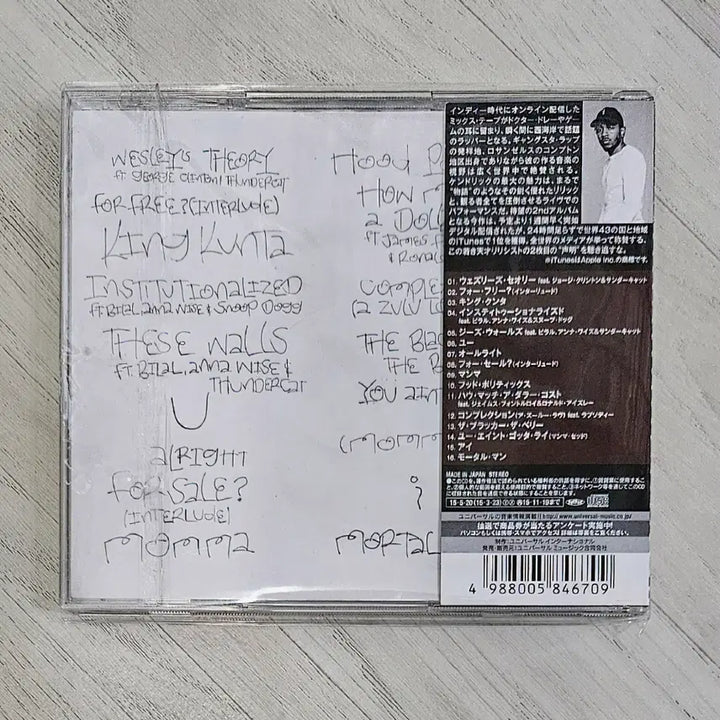 WESLEY'S THEORY
ft. GEORGE CLINTON/THUNDERCAT
FOR FREE? (INTERLUDE)
King Kunta
INSTITUTIONALIZED
ft. BILAL, ANNA WISE & SNOOP DOGG
THESE WALLS
FT. BILAL, ANNA WISE &
THUNDERCAT
U
ALRIGHT
FOR SALE?
(INTERLUDE)
MOMMA
HOOD
HOW
A DOLL
FT. JAMES
& RONAL
COMPLE
(A ZULU LO
THE BLA
THE B
YOU AIN
(MOMM
i
MORTAL
インディー時代にオンライン配信した
ミックス・テープがドクター・ドレーやゲー
ムの耳に留まり、瞬く間に西海岸で話題
のラッパーとなる。ギャングスタ・ラップ
の発祥地、ロサンゼルスのコンプトン
地区出身でありながら彼の作る音楽の
視野は広く世界中で絶賛される。
ケンドリックの最大の魅力は、まるで
"物語"のようなその鋭く濡れたリリック
と、観る者全てを圧倒させるライヴでの
パフォーマンスだ。待望の2ndアルバム
となる今作は、予定より1週間早く突如
デジタル配信されたが、24時間足らずで世界43の国と地域
のiTunesで1位を獲得。全世界のメディアが挙って称賛する、
この若き天才リリシストの2枚目の"声明"を聴き逃すな。
※iTunesはApple Inc.の商標です。
01. ウェズリーズ・セオリー feat. ジョージ・クリントン&サンダーキャット
02. フォー・フリー?(インタールード)
03. キング・クンタ
04. インスティトゥーショナライズド
feat. ビラル、アンナ・ワイズ&スヌープ・ドッグ
05. ジーズ・ウォールズ feat. ビラル、アンナ・ワイズ&サンダーキャット
06. ユー
07. オールライト
08. フォー・セール?(インタールード)
09. マンマ
10. フッド・ポリティックス
11. ハウ・マッチ・ア・ダラー・コスト
feat. ジェイムス・フォントルロイ&ロナルド・アイズレー
12. コンプレクション(ア・ズールー・ラヴ) feat. ラプソディー
13. ザ・ブラッカー・ザ・ベリー
14. ユー・エイント・ガッタ・ライ(マンマ・セッド)
15. アイ
16. モータル・マン
MADE IN JAPAN STEREO
15・5・20(15・3・23) 15・11・19まで
ユニバーサルの音楽情報満載!! http://www.universal-music.co.jp/
抽選で商品券が当たるアンケート実施中!
パソコンもしくは携帯・スマホでアクセス! 詳細は封入をご覧ください。
制作:ユニバーサル インターナショナル
発売・販売元:ユニバーサル ミュージック合同会社
4 988005 846709